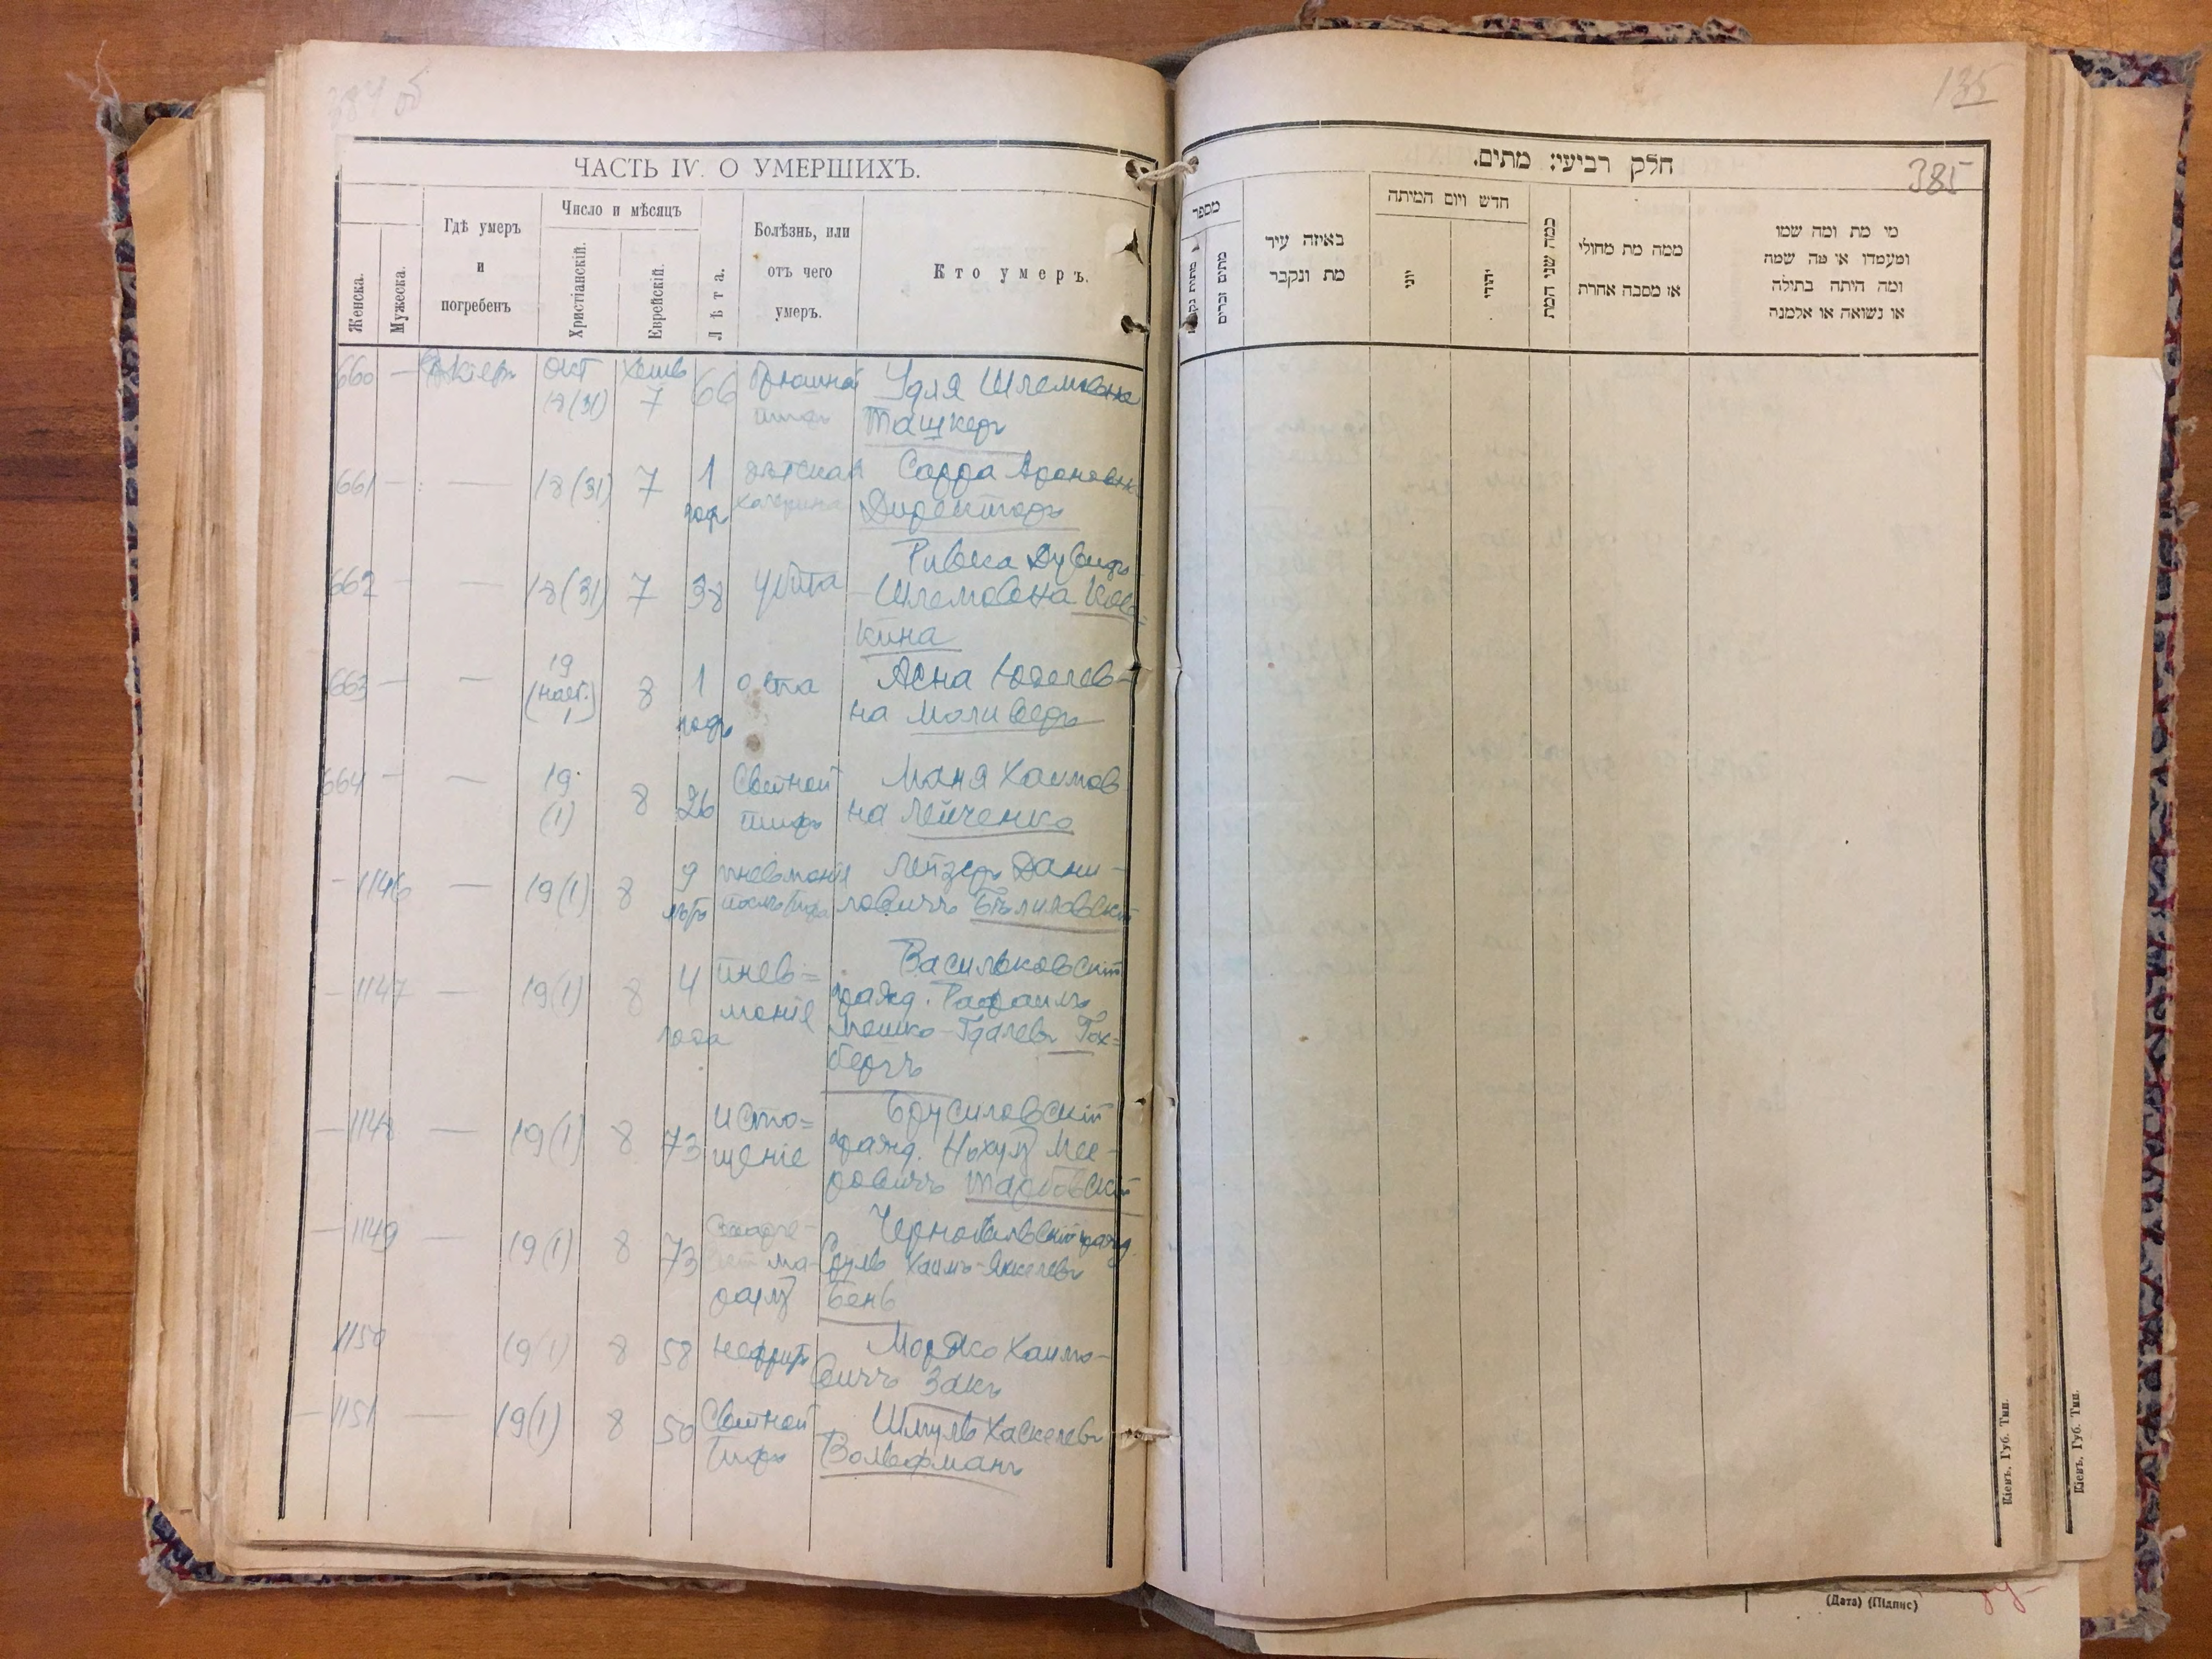 384 об
ЧАСТЬ IV. О УМЕРШИХЪ.
Женска.
Мужеска.
Гдѣ умеръ
и
погребенъ
Число и мѣсяцъ
Христіанскій.
Еврейскій.
Лѣта.
Болѣзнь, или
отъ чего
умеръ.
Кто умеръ.
660 — окт хешв Брюшной Удля Шлемовна
18(31) 7 66 тиф Ташкеръ
661 — — 18(31) 7 1 дѣтская Сарра Ароновна
годъ Директоръ
Ривка Дувидъ
662 — — 18(31) 7 38 убита Шлемовна
кина
663 — — 19 8 1 оспа Асна
1 годъ на
664 — — 19 8 26 Сыпной Маня Хаимов
(1) тифъ на Лейченко
— 1146 — 19(1) 8 9 пневмонія Лейзеръ Дани-
ловичъ
— 1147 — 19(1) 8 4 пнев= Васильковскій
монія гражд. Рафаилъ
года Мошко-Гдалевъ Гох=
бергъ
— 1148 — 19(1) 8 73 Исто= Брусиловскій
щеніе гражд. Нохум Мее-
ровичъ Тарбовскій
— 1149 19(1) 8 73 Чернобыльскій гражд.
ма- Сруль Хаимъ-Янкелевъ
Бенъ
1150 19(1) 8 58 нефритъ Мордко Хаимо-
вичъ Закъ
— 1151 — 19(1) 8 50 Сыпной Шмуль Хаскелевъ
тифъ Вольфманъ
135
385
חלק רביעי: מתים.
מספר
מתים זכרים
באיזה עיר
מת ונקבר
חדש ויום המיתה
יוני
יהודי
כמה שני המת
ממה מת מחולי
או מסבה אחרת
מי מת ומה שמו
ומעמדו או מה שמה
ומה היתה בתולה
או נשואה או אלמנה
Кіевъ. Губ. Тип.
Кіевъ. Губ. Тип.
(Дата) (Підпис)